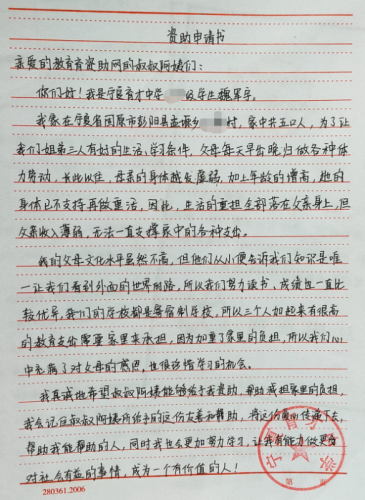 资助申请书
亲爱的教育资助网的叔叔阿姨们：
你们好！我是宁夏育才中学 级学生穆军宇。
我家在宁夏省固原市彭阳县孟塬乡 村，家中共五口人，为了让
我们姐弟三人有好的生活、学习条件，父母每天早出晚归做各种体
力劳动，长此以往，母亲的身体越发虚弱，加上年龄的增高，她的
身体已不支持再做重活，因此，生活的重担全部落在父亲身上，但
父亲收入薄弱，无法一直支撑家中的各种支出。
我的父母文化水平虽然不高，但他们从小便告诉我们知识是唯
一让我们看到外面的世界的路，所以我们努力读书，成绩也一直比
较优异，我们的学校都是寄宿制学校，所以三个人加起来有很高
的教育支出需要家里来承担，因为加重了家里的负担，所以我们心
中充满了对父母的感恩，也很珍惜学习的机会。
我真诚地希望叔叔阿姨能够给予我资助，帮助减担家里的负担，
我会记住叔叔阿姨所给予的这份友善和帮助，将这份 传递下去，
帮助我能帮助的人，同时我也会更加努力学习，让我有能力做更多
对社会有益的事情，成为一个有价值的人！
280361.2006